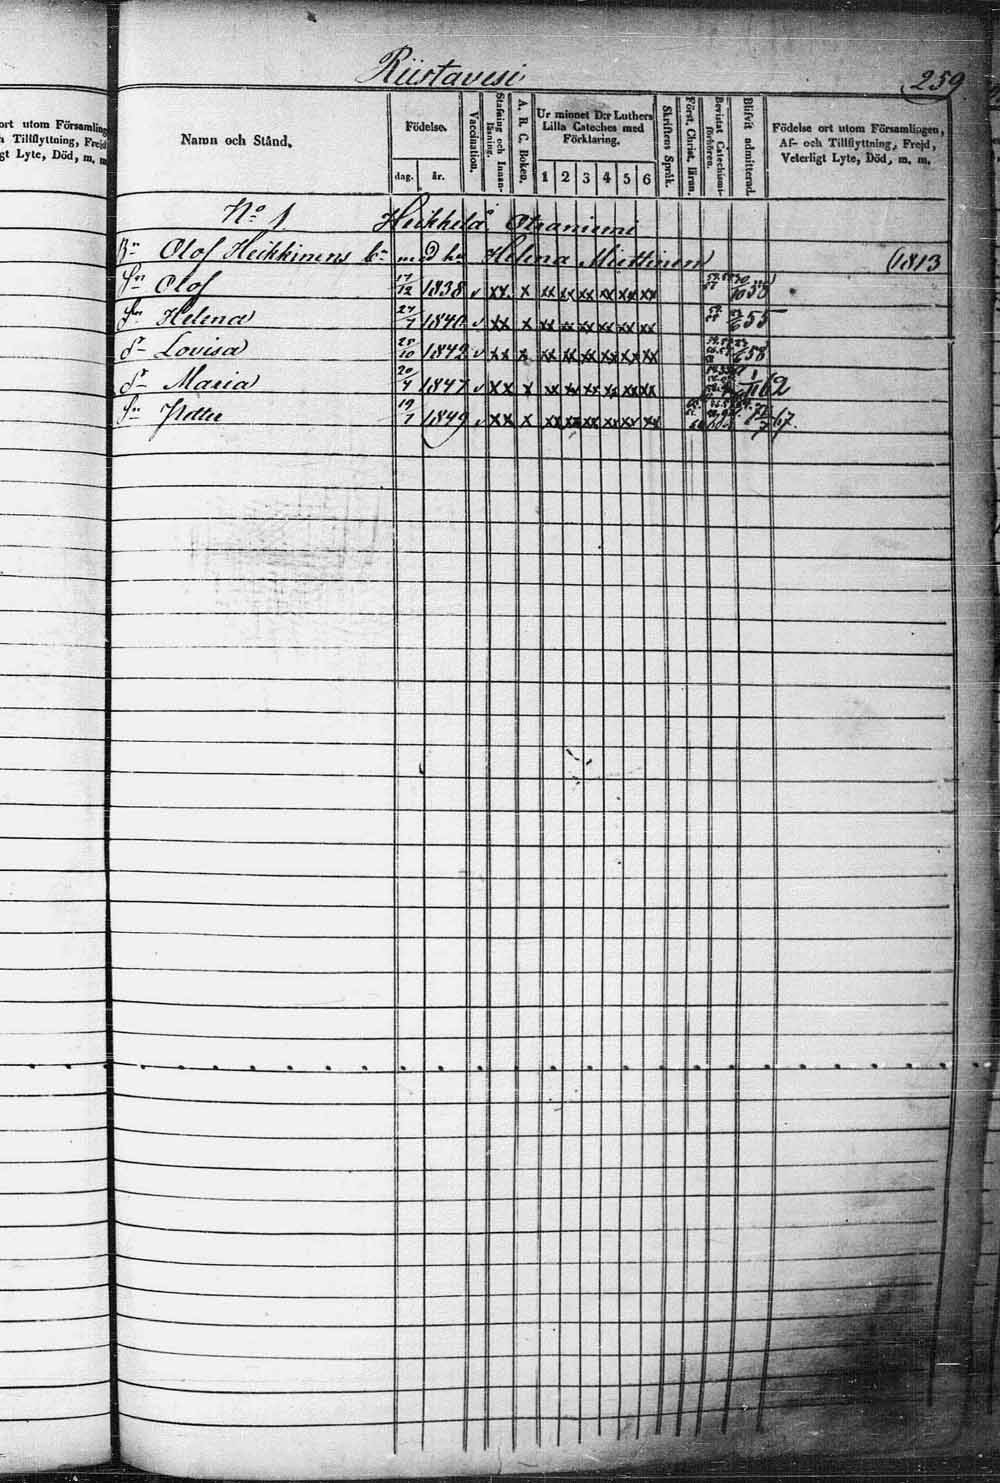 Riistavesi
259
ort utom Församling
h Tillflyttning, Frejd
gt Lyte, Död, m. m
Namn och Stånd.
Födelse.
dag. år.
Vaccination.
Stafning och Innan-
läsning.
A. B. C. Boken.
Ur minnet D:r Luthers
Lilla Cateches med
Förklaring.
1 2 3 4 5 6
Skriftens Språk.
Först. Christ. Lärun.
Bevistat Catechismi-
förhören.
Blifvit admitterad.
Födelse ort utom Församlingen,
Af- och Tillflyttning, Frejd,
Veterligt Lyte, Död, m. m.
No 1 Heikkelä
Bn Olof Heikkinens bn med hu Helena Miettinen (1813
Sn Olof 17/12 1838 v xx x xx xx xx xx xx xx 58
Helena 1840 v xx x xx xx xx xx xx xx 55
dr Lovisa 10 1842 v xx x xx xx xx xx xx xx 58
dr Maria 20/4 1847 v xx x xx xx xx xx xx xx 62
Sn Petter 19/1 1849 v xx x xx xx xx xx xx xx 67.